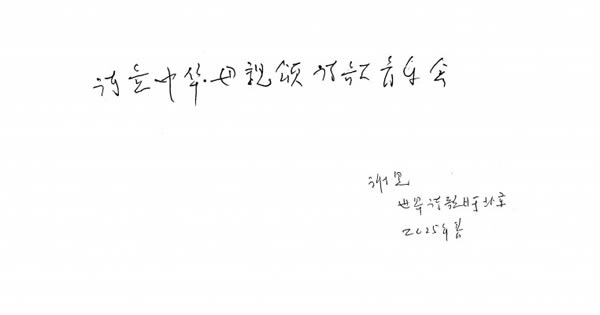 诗意中华·母親颂诗歌音乐会
谢冕
世界诗歌日于北京
2025年春